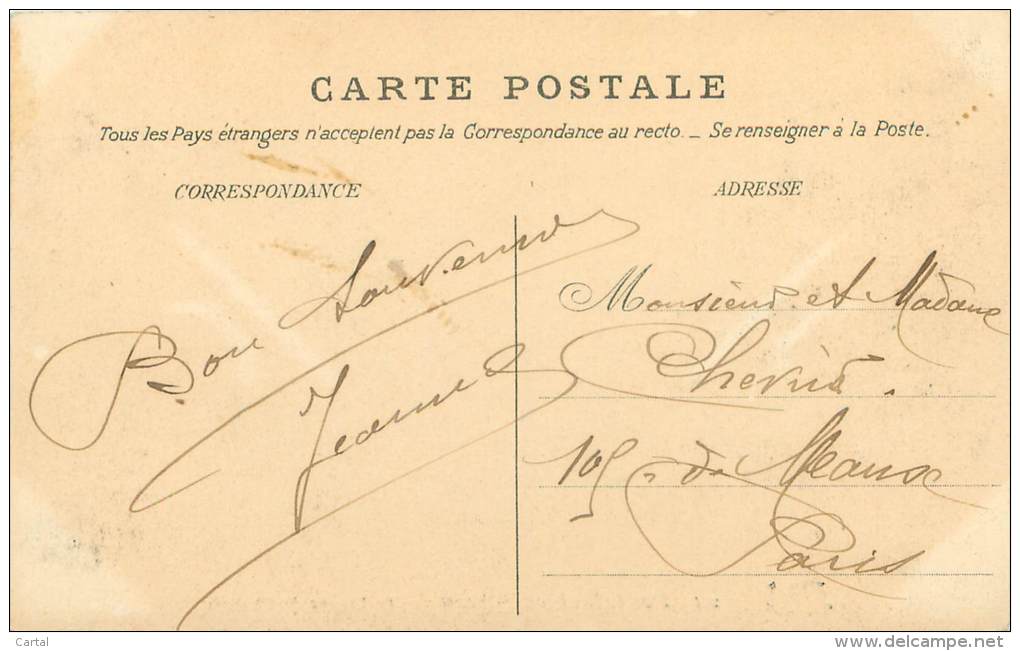 CARTE POSTALE
Tous les Pays étrangers n'acceptent pas la Correspondance au recto. _ Se renseigner à la Poste.
CORRESPONDANCE
Bon Souvenir
Jeanne
ADRESSE
Monsieur et Madame
105
Paris
Cartal
www.delcampe.net